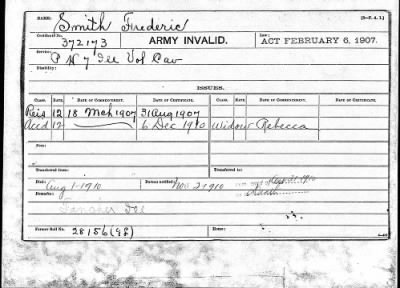 NAME: Smith Frederic [3-F. A. I.]
Certificate No. 372173 ARMY INVALID. Law: ACT FEBRUARY 6, 1907.
Service:
Disability:
ISSUES.
CLASS. RATE. DATE OF COMMENCEMENT. DATE OF CERTIFICATE. CLASS. RATE. DATE OF COMMENCEMENT. DATE OF CERTIFICATE.
Reis 12 18 Mch 1907 31 Aug 1907
Accd 12 6 Dec 1910 Widow Rebecca
Transferred from: Transferred to:
Died: Aug 1-1910 Bureau notified: Nov 2-1910
Remarks:
Former Roll No. 28156 Home: